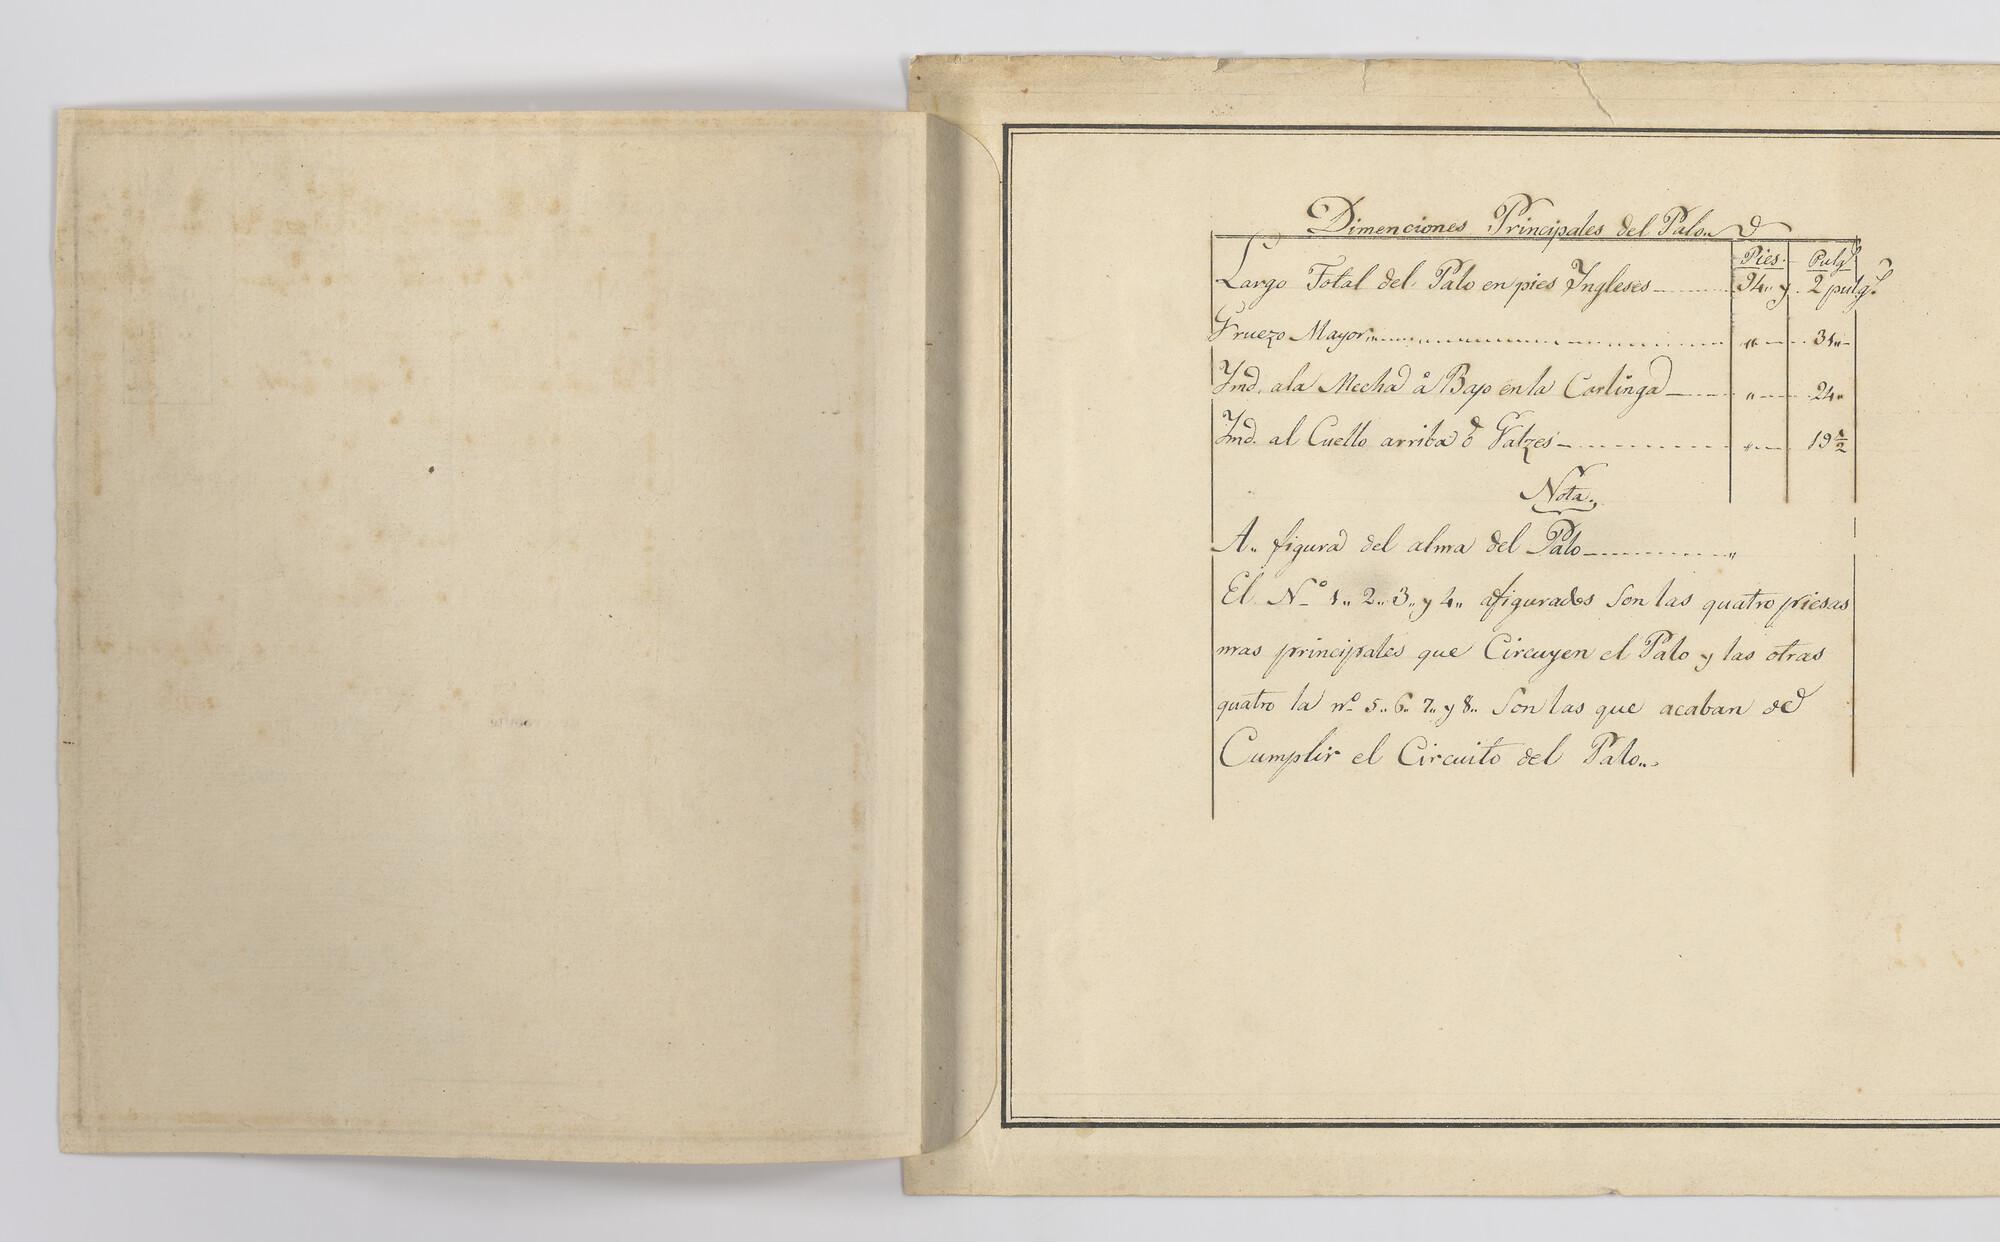 Dimenciones Principales del Palo..
Pies. Pulg.s
Largo Total del Palo en pies Ingleses 94.. y 2 pulg.s
Gruezo Mayor.. " 31..
Ymd. ala Mecha â Bajo en la Carlinga " 24..
Ymd. al Cuello arriba ô Valzes " 19 1/2
Nota.
A.. figura del alma del Palo "
El N.o 1.. 2.. 3.. y 4.. afigurados son las quatro piesas
mas principales que Circuyen el Palo y las otras
quatro la n.o 5.. 6.. 7.. y 8.. son las que acaban de
Cumplir el Circuito del Palo..